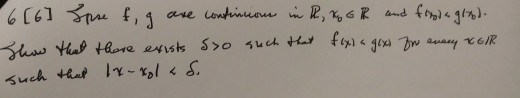 6 [6] Spse f, g are continuous in ℝ, x₀ ∈ ℝ and f(x₀) < g(x₀).
Show that there exists δ>0 such that f(x) < g(x) for every x∈ℝ
such that |x - x₀| < δ.